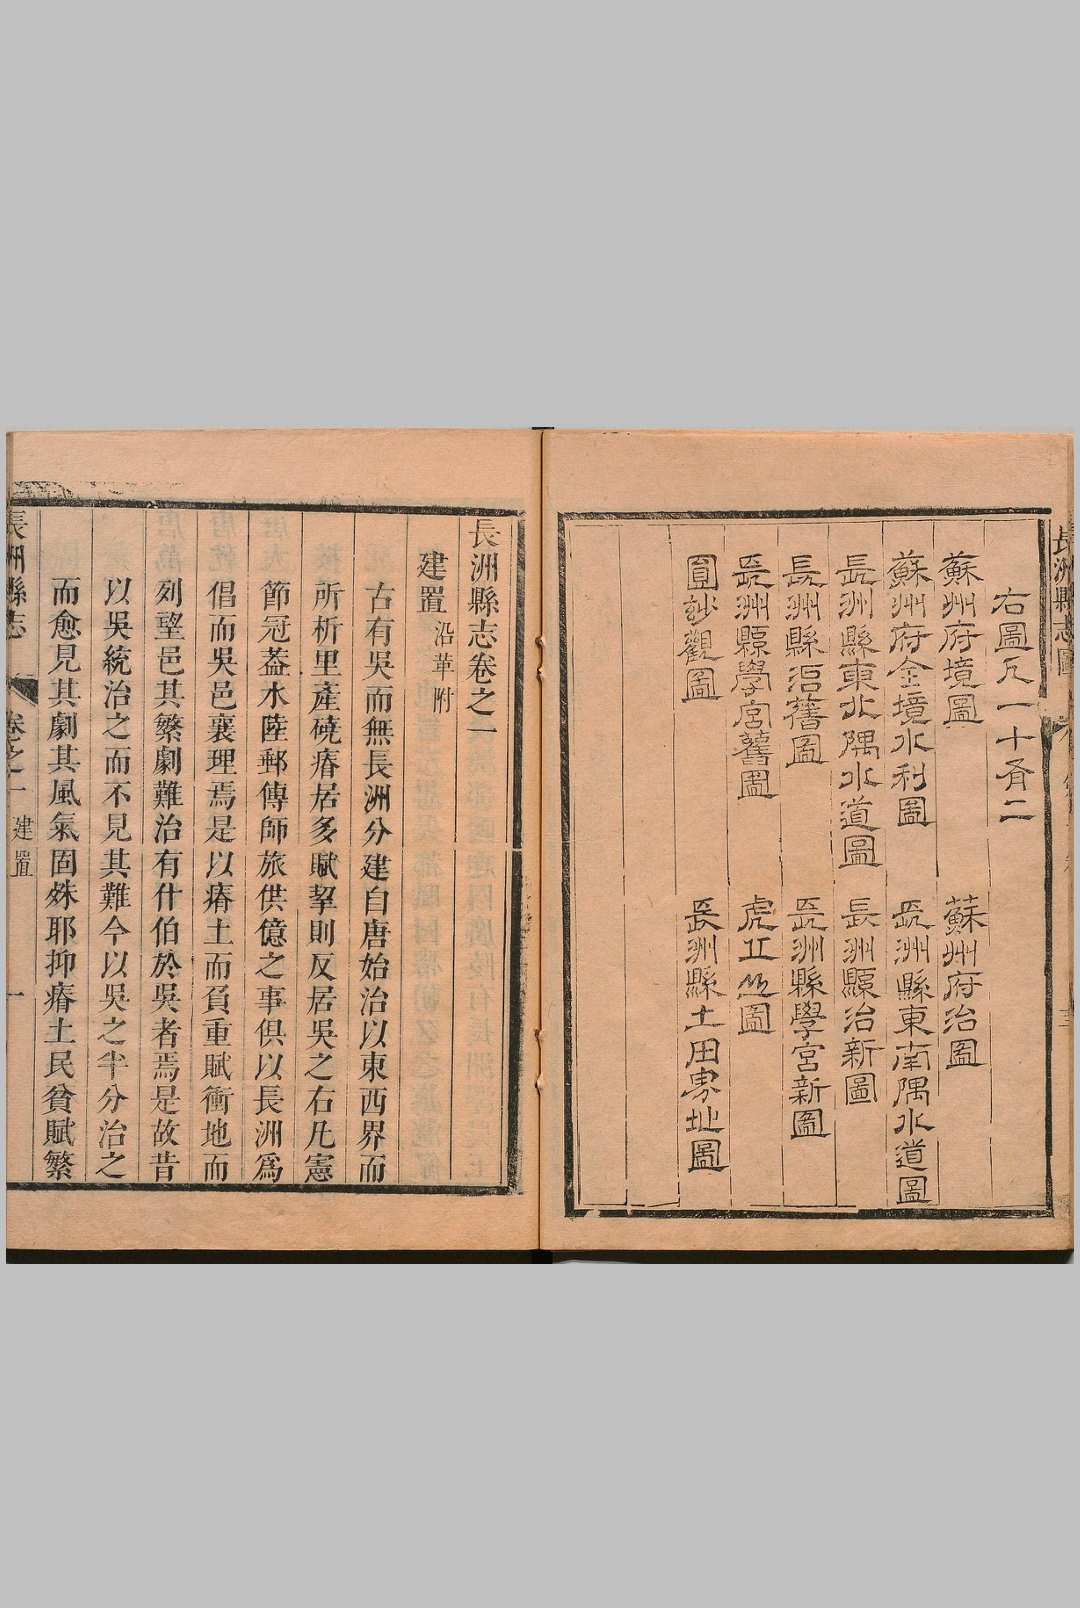 長洲縣志圖
右圖凡一十有二
蘇州府境圖
蘇州府治圖
蘇州府全境水利圖
長洲縣東南隅水道圖
長洲縣東北隅水道圖
長洲縣治新圖
長洲縣治舊圖
長洲縣學宮新圖
長洲縣學宮舊圖
虎丘山圖
圓妙觀圖
長洲縣土田界址圖
長洲縣志卷之一
建置沿革附
古有吳而無長洲分建自唐始治以東西界而
所析里產磽瘠居多賦挈則反居吳之右凡憲
節冠葢水陸郵傳師旅供億之事俱以長洲爲
倡而吳邑襄理焉是以瘠土而負重賦衝地而
列望邑其繁劇難治有什伯於吳者焉是故昔
以吳統治之而不見其難今以吳之半分治之
而愈見其劇其風氣固殊耶抑瘠土民貧賦繁
長洲縣志 卷之一 建置 一